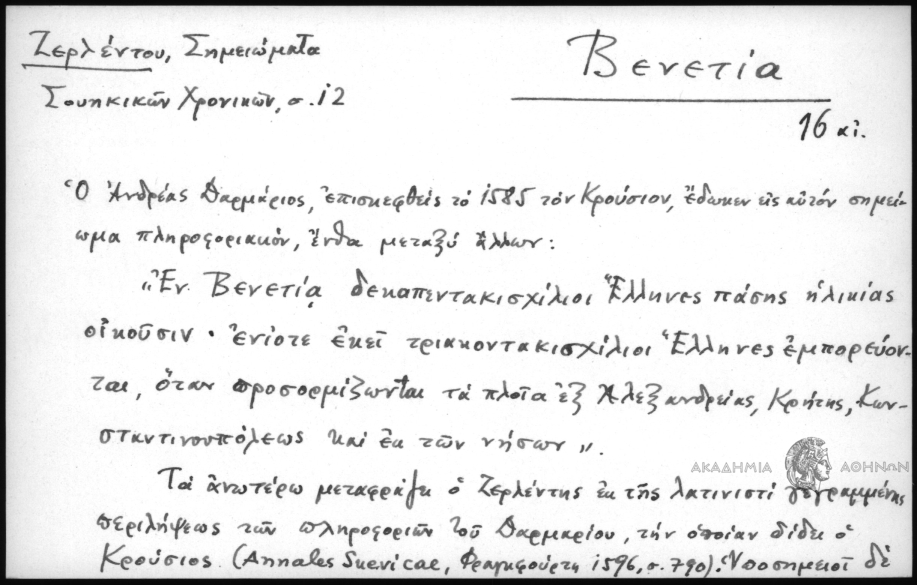 Ζερλέντου, Σημειώματα
Σουηκικῶν Χρονικῶν, σ. 12
Βενετία
16 αἰ.
Ὁ Ἀνδρέας Δαρμάριος, ἐπισκεφθεὶς τὸ 1585 τὸν Κρούσιον, ἔδωκεν εἰς αὐτὸν σημεί-
ωμα πληροφοριακόν, ἔνθα μεταξὺ ἄλλων:
„Ἐν Βενετίᾳ δεκαπεντακισχίλιοι Ἕλληνες πάσης ἡλικίας
οἰκοῦσιν· ἐνίοτε ἐκεῖ τριακοντακισχίλιοι Ἕλληνες ἐμπορεύον-
ται, ὅταν προσορμίζωνται τὰ πλοῖα ἐξ Ἀλεξανδρείας, Κρήτης, Κων-
σταντινουπόλεως καὶ ἐκ τῶν νήσων„.
ΑΚΑΔΗΜΙΑ ΑΘΗΝΩΝ
Τὰ ἀνωτέρω μεταφράζει ὁ Ζερλέντης ἐκ τῆς λατινιστὶ γεγραμμένης
περιλήψεως τῶν πληροφοριῶν τοῦ Δαρμαρίου, τὴν ὁποίαν δίδει ὁ
Κρούσιος. (Annales Suevicae, Φραγκφούρτη 1596, σ. 790). Ὑποσημειοῖ δὲ